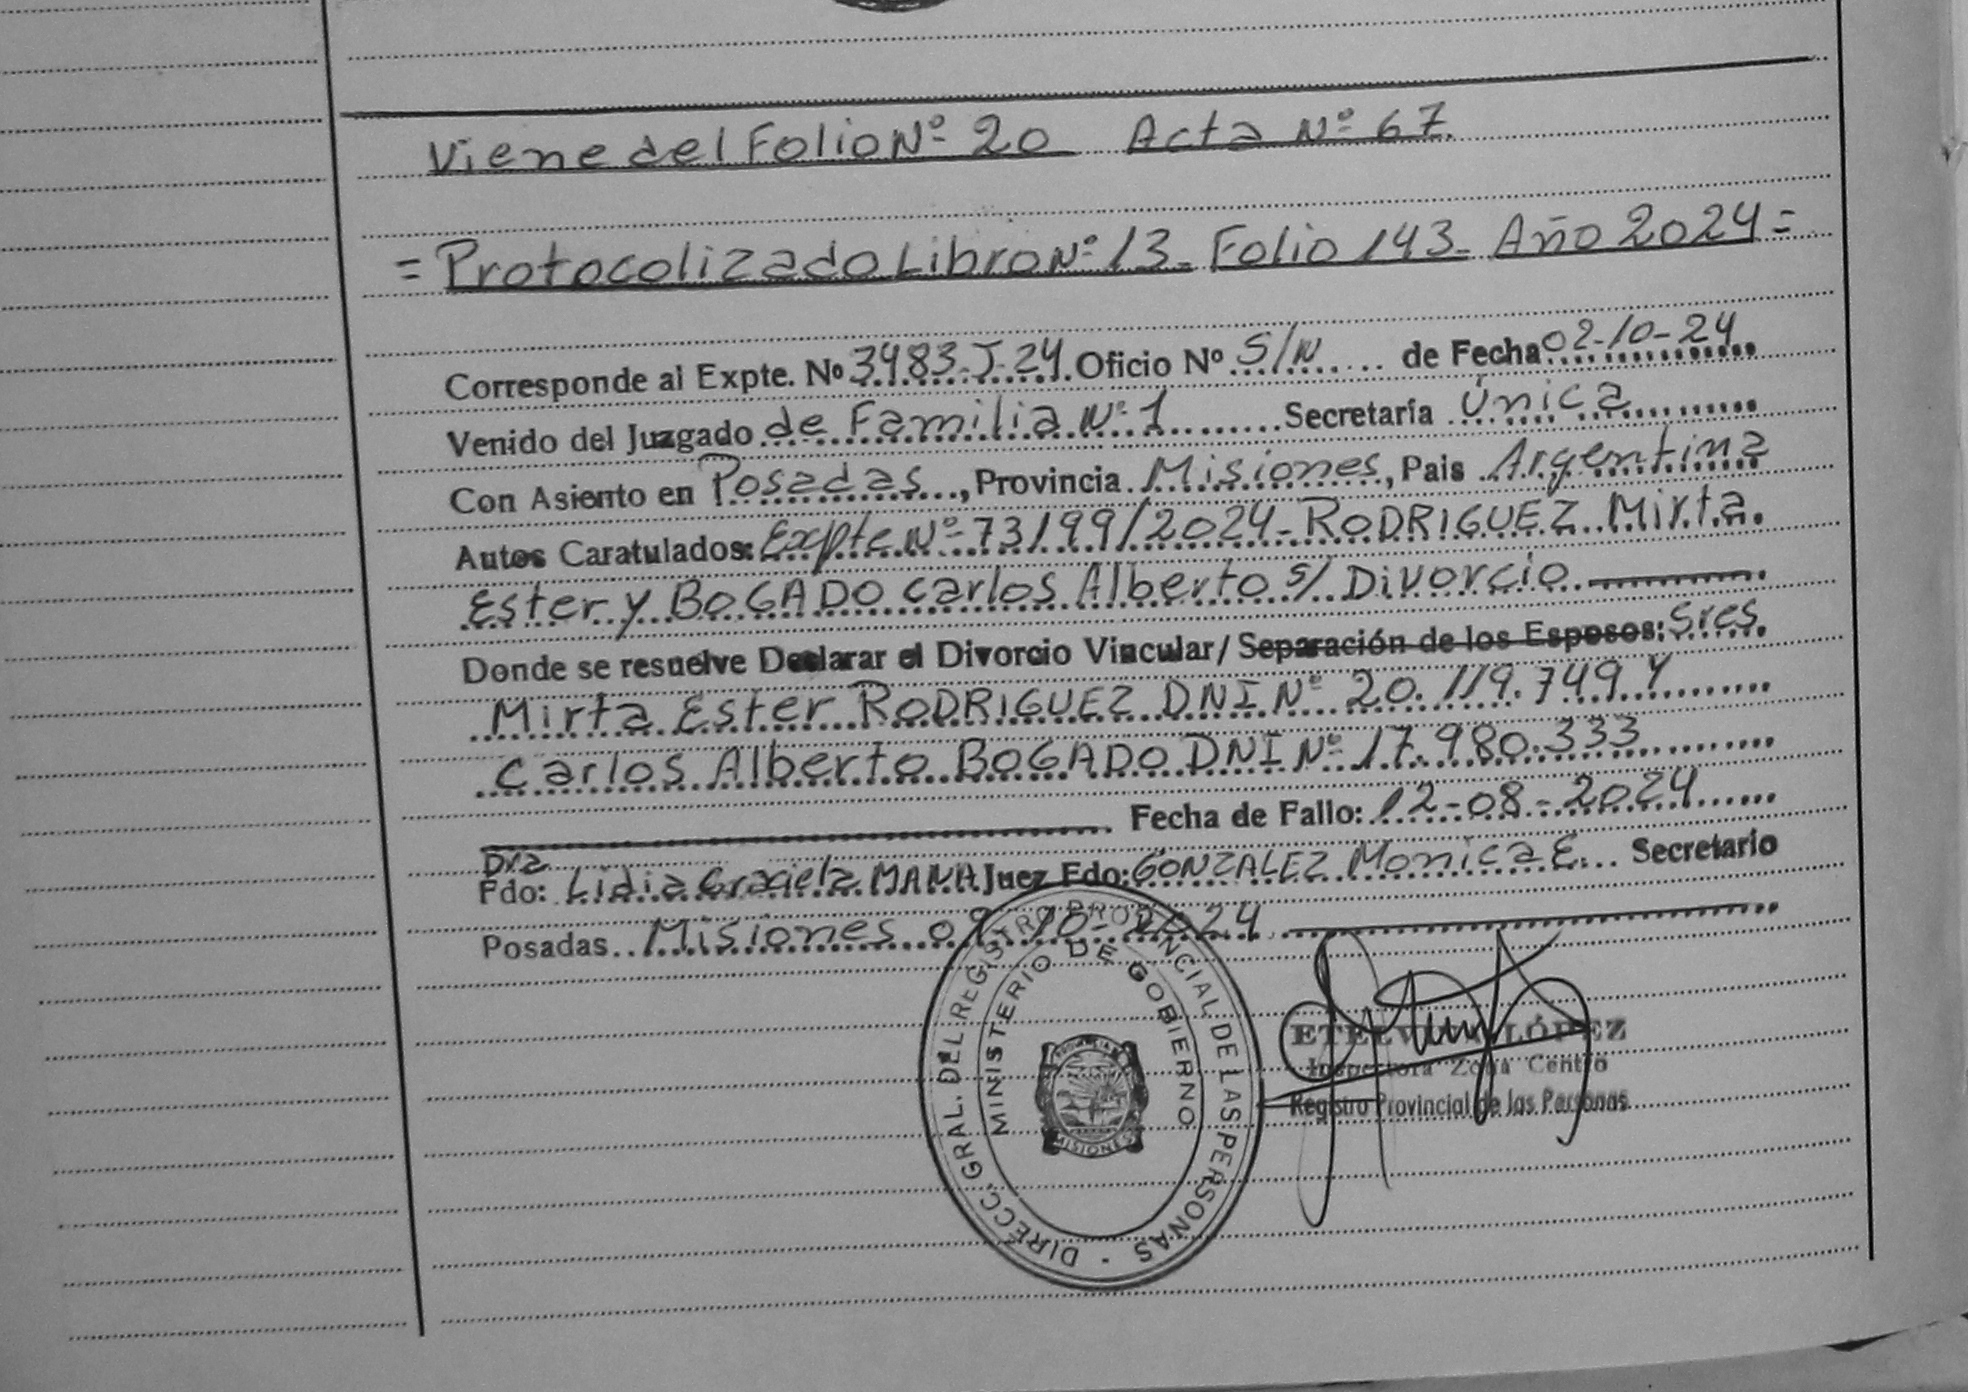 Viene del Folio Nº 20 Acta Nº 67
= Protocolizado Libro Nº 13 - Folio 143 - Año 2024 =
Corresponde al Expte. Nº 3483-J-24. Oficio Nº S/N de Fecha 02-10-24
Venido del Juzgado de Familia Nº 1 Secretaría Única
Con Asiento en Posadas, Provincia Misiones, Pais Argentina
Autos Caratulados: Expte Nº 73199/2024 - RODRIGUEZ Mirta
Ester y BOGADO Carlos Alberto s/ Divorcio
Donde se resuelve Declarar el Divorcio Vincular/ Separación de los Esposos: Sres.
Mirta Ester RODRIGUEZ DNI Nº 20.119.749 Y
Carlos Alberto BOGADO DNI Nº 17.980.333
Fecha de Fallo: 12-08-2024
Dra
Fdo: Lidia Graciela Juez Fdo: GONZALEZ Monica E. Secretario
Posadas Misiones 09-10-2024
DIRECC. GRAL. DEL REGISTRO PROVINCIAL DE LAS PERSONAS -
MINISTERIO DE GOBIERNO
PROVINCIA
MISIONES
ETELVINA LÓPEZ
Inspectora Zona Centro
Registro Provincial de las Personas